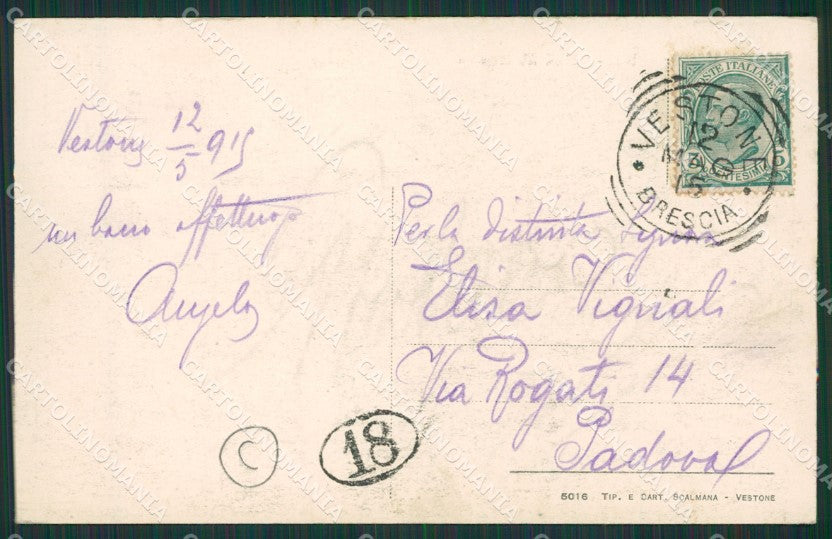 Vestone 12/5 915
un bacio affettuoso
Angelo
POSTE ITALIANE
CENTESIMI
VESTONE
12
MAG
15
BRESCIA
Per la distinta Signora
Elisa Vignali
Via Rogati 14
Padova
C
18
5016 TIP. E CART. SCALMANA - VESTONE
CARTOLINOMANIA